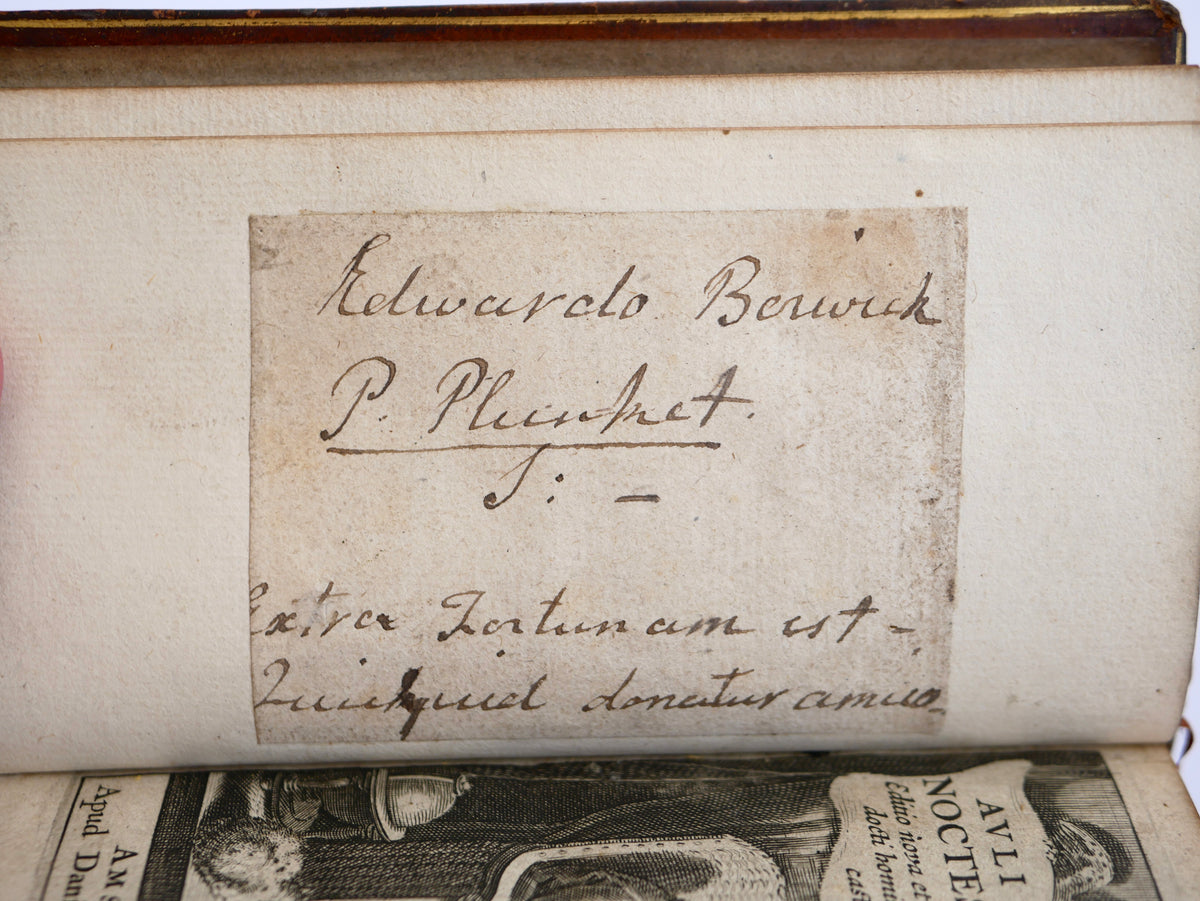 Edwardo Berwick
P. Plunket.
S: –
Extra Fortunam est –
Quidquid donatur amico.
AVLI
NOCTES
Editio nova et
docti homi
cast
AMS
Apud Dan